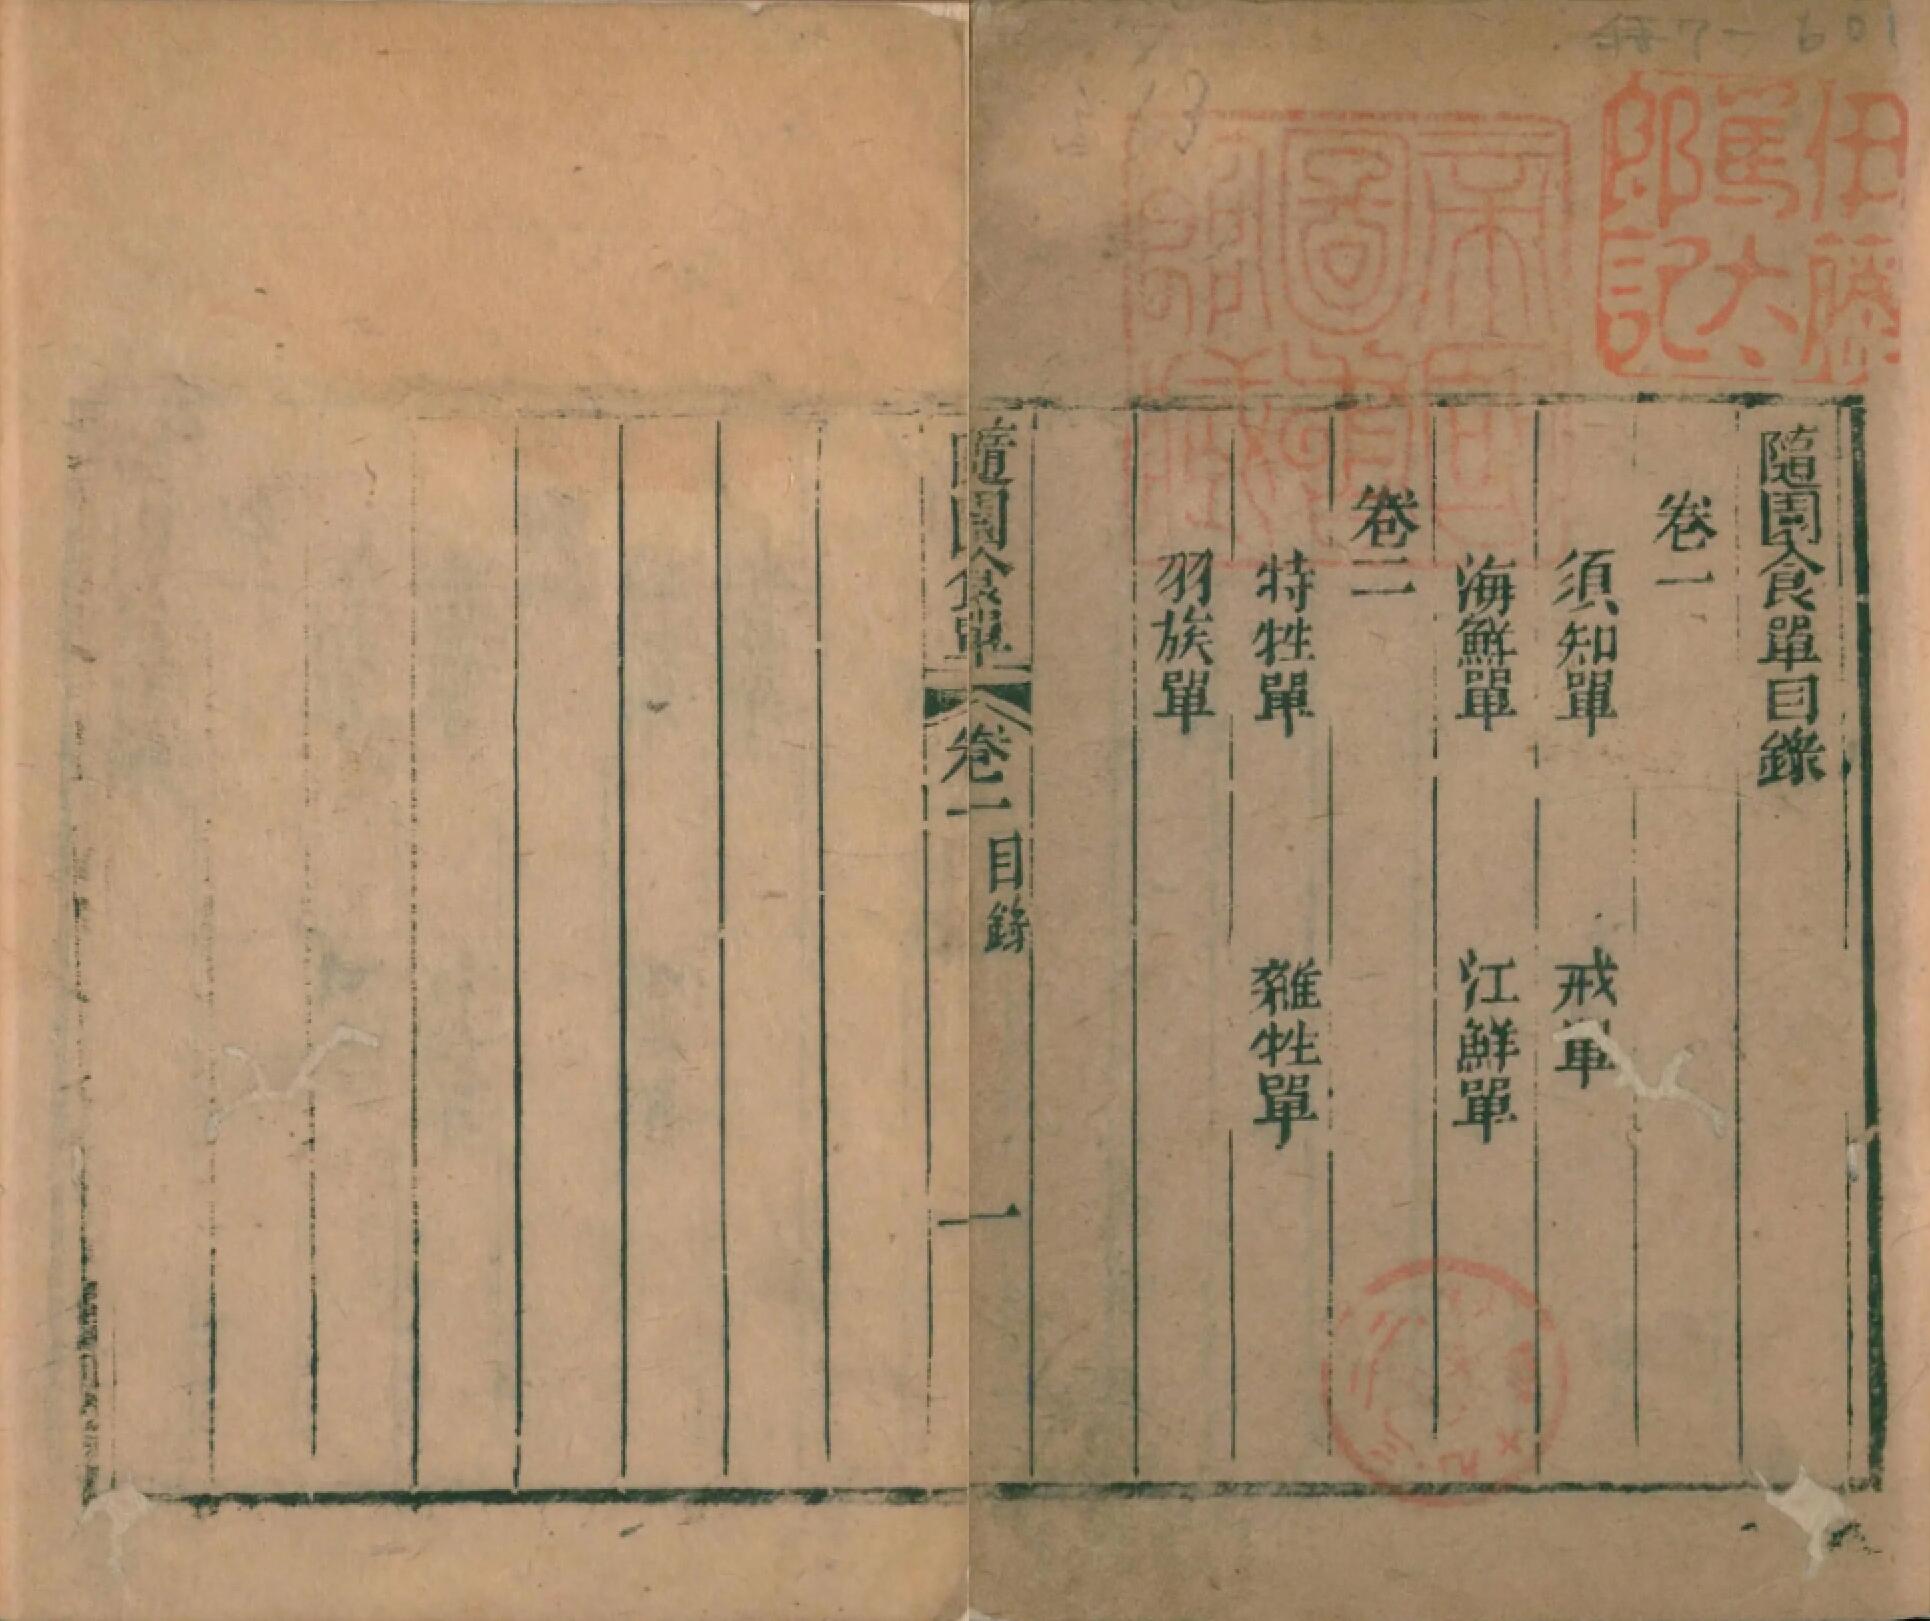 隨園食單目錄
卷一
須知單 戒單
海鮮單 江鮮單
卷二
特牲單 雜牲單
羽族單
隨園食單 卷一 目錄 一
伊藤
篤太
郎記
帝國
圖書
館藏